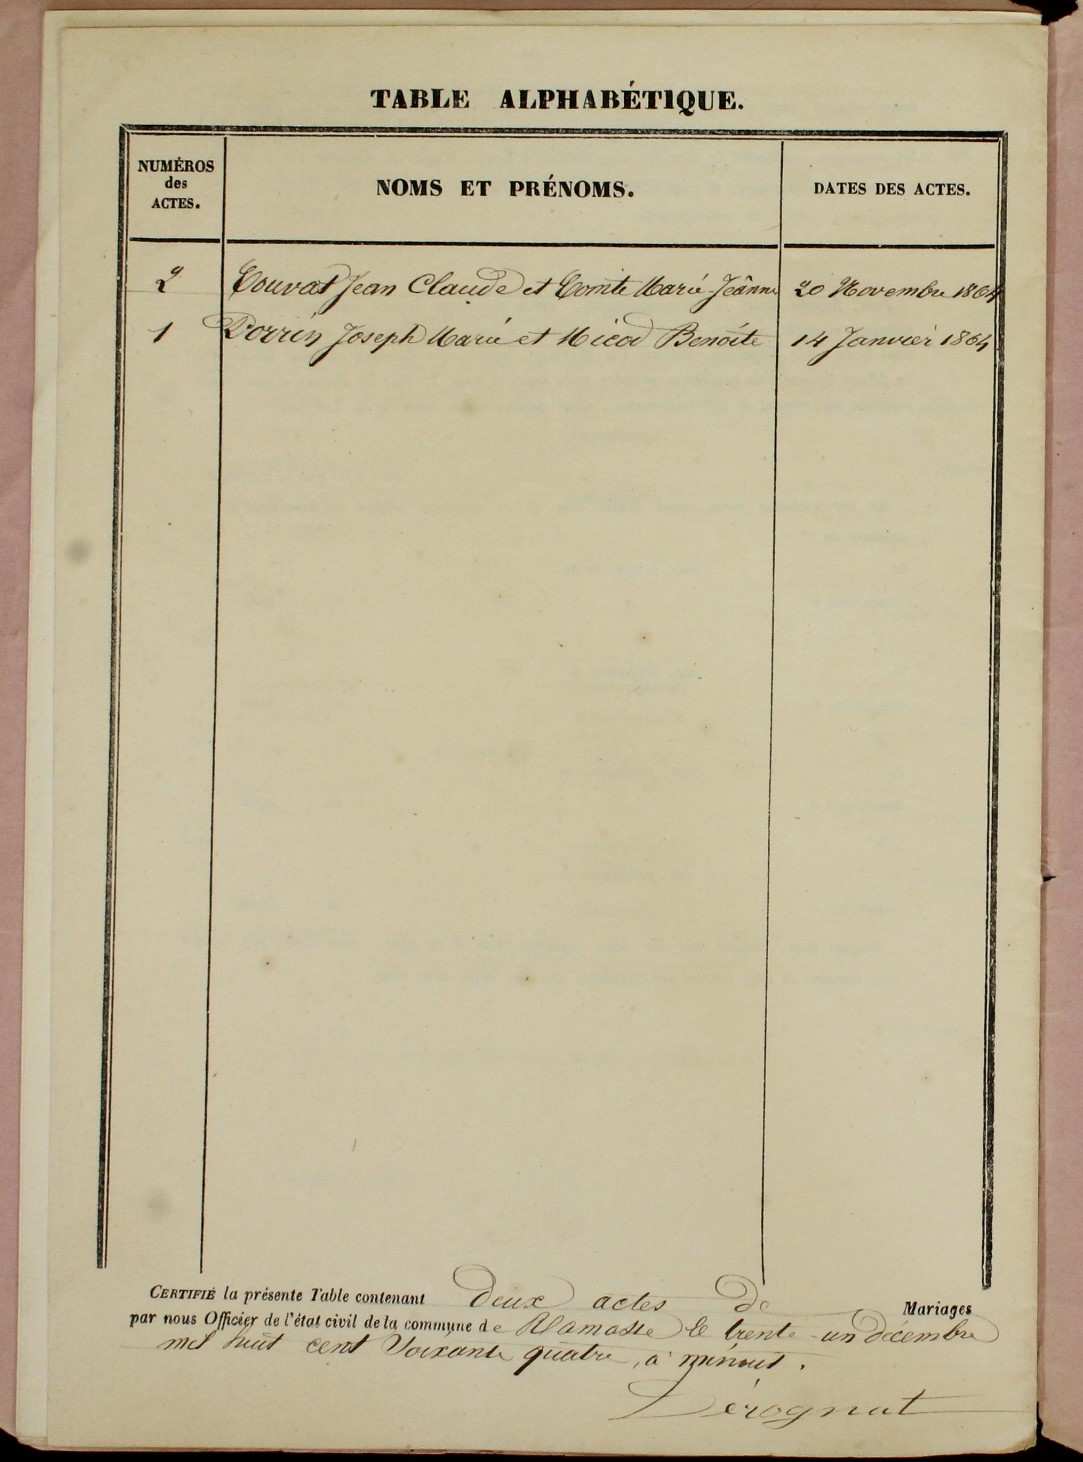 TABLE ALPHABÉTIQUE.
NUMÉROS
des
ACTES.
NOMS ET PRÉNOMS.
DATES DES ACTES.
2 Couvat Jean Claude et Comte Marie Jeanne 20 Novembre 1864
1 Perrin Joseph Marie et Nicod Benoite 14 Janvier 1864
CERTIFIÉ la présente Table contenant Deux actes de Mariages
par nous Officier de l'état civil de la commune de Ramasse le trente un Décembre
mil huit cent Soixante quatre, à minuit.
Pérognat